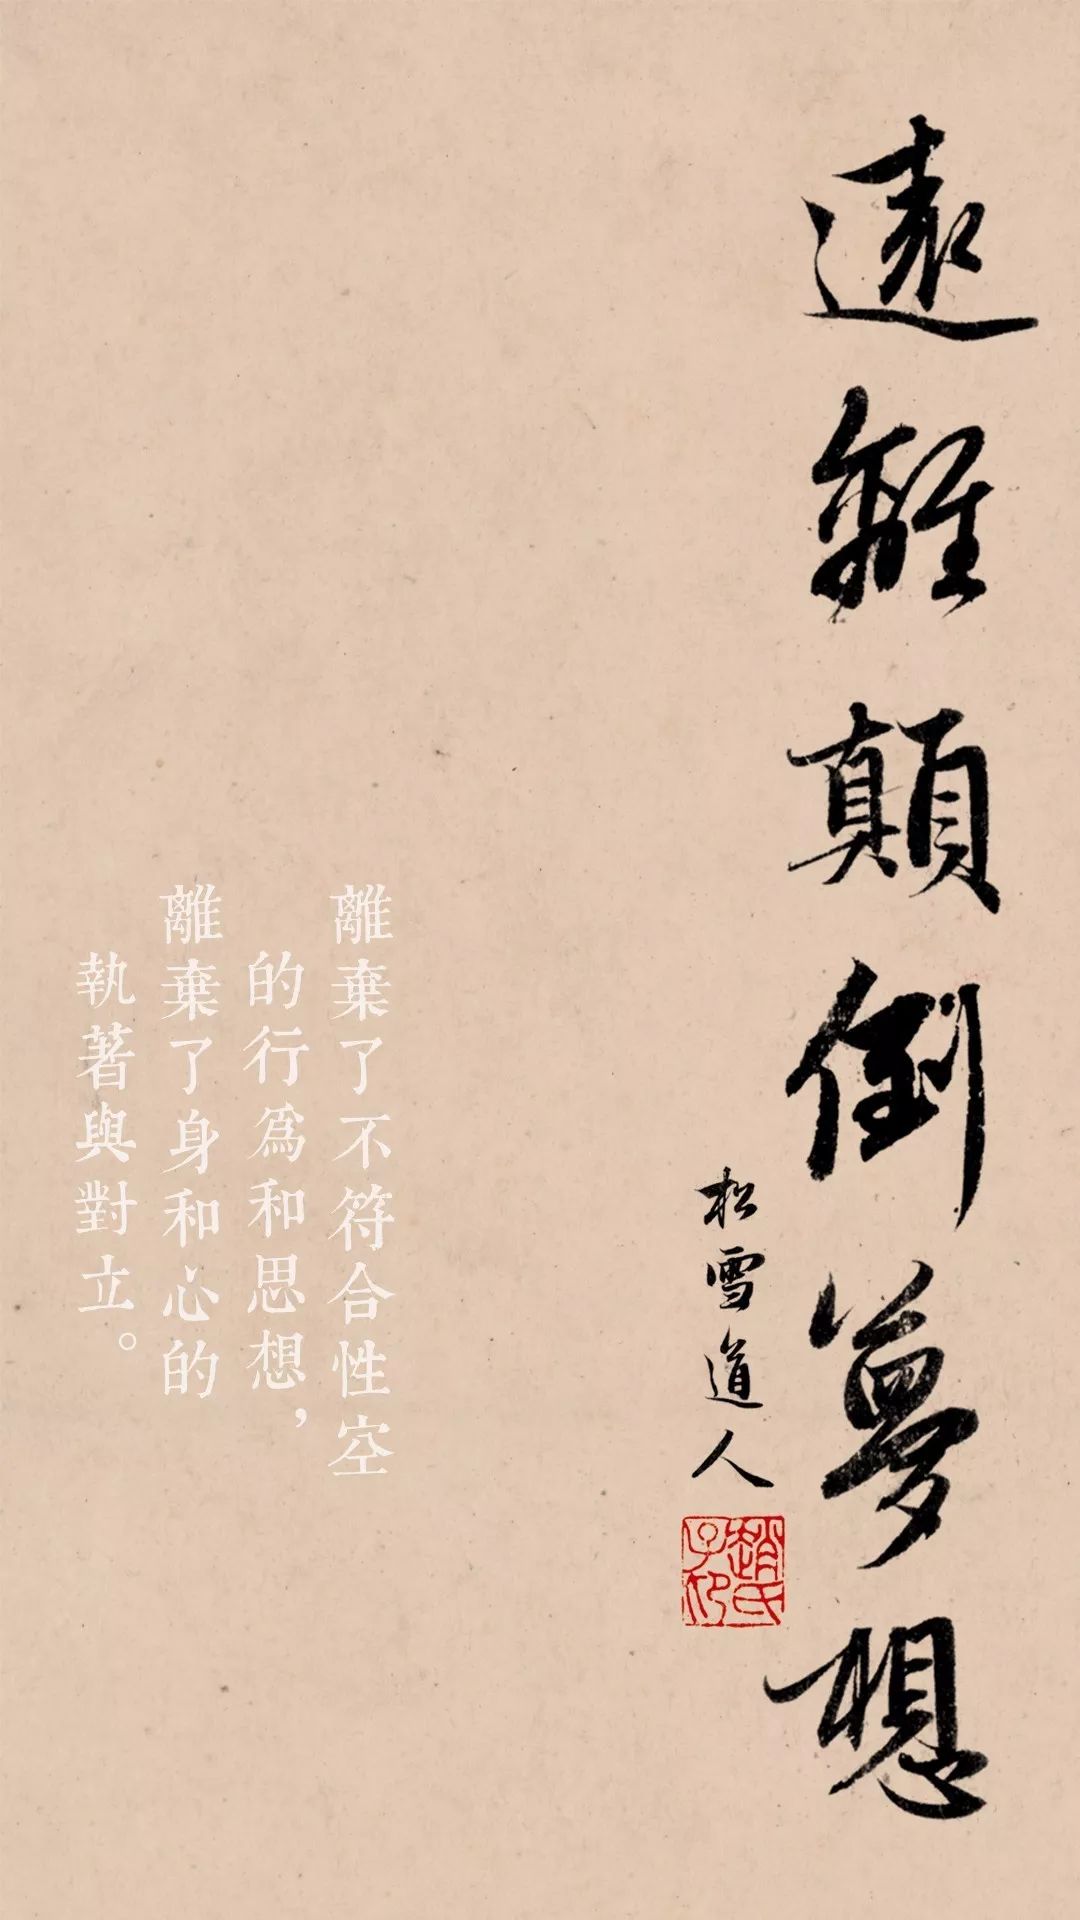 遠離顛倒夢想
松雪道人
趙氏子印
離棄了不符合性空
的行爲和思想，
離棄了身和心的
執著與對立。